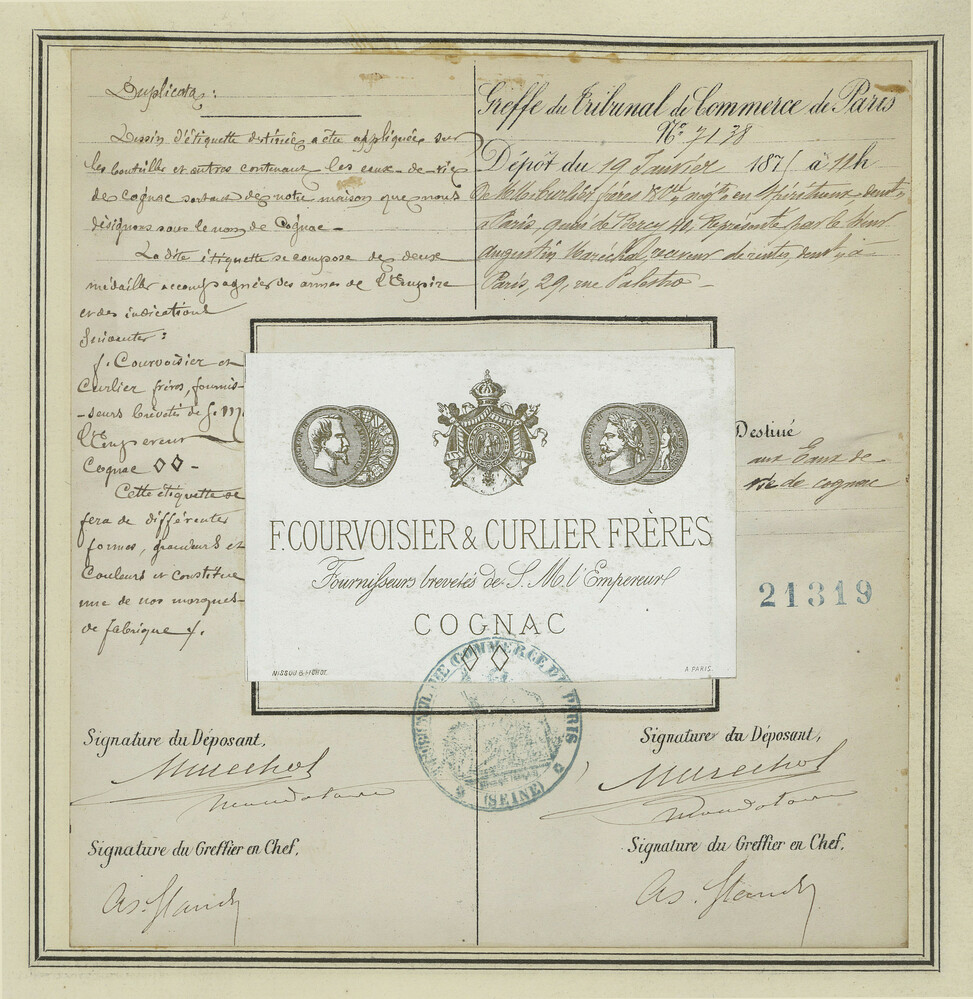 Duplicata :
Dessin d'étiquette destinée a être appliquée sur
les bouteilles et autres contenant les eaux-de-vie
de cognac sortant de notre maison que nous
désignons sous le nom de Cognac -
La dite étiquette se compose de deux
médailles accompagnées des armes de l'Empire
et des indications
suivantes :
f. Courvoisier et
Curlier frères, fournis-
-seurs brevetés de S. M.
l'Empereur
Cognac ◊◊ -
Cette étiquette se
fera de différentes
formes, grandeurs et
Couleurs et constitue
une de nos marques
de fabrique
Greffe du Tribunal de Commerce de Paris
N° 7138
Dépôt du 19 Janvier 187 à 11h
De M.M. Curlier frères en Spiritueux, demt
à Paris, quai de Bercy Représenté par le Sieur
Augustin Maréchal, receveur de rentes, demt à
Paris, 29, rue Palestro -
Destiné
aux Eaux de
vie de cognac
21319
F. COURVOISIER & CURLIER FRÈRES
Fournisseurs brevetés de S. M. l'Empereur
COGNAC
NISSOU A PARIS.
TRIBUNAL DE COMMERCE DE PARIS
(SEINE)
Signature du Déposant,
Marechal
mandataire
Signature du Greffier en Chef,
Signature du Déposant,
Marechal
mandataire
Signature du Greffier en Chef,